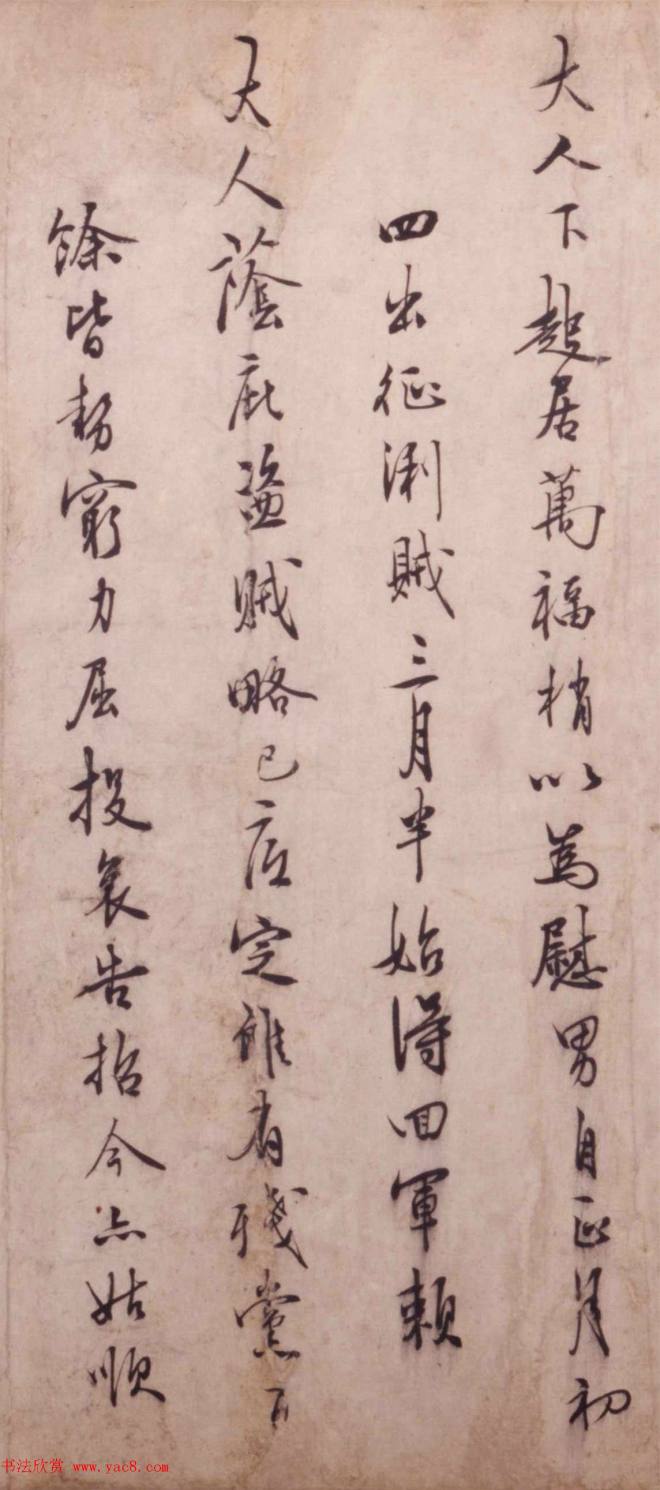 大人下起居萬福稍以為慰男自正月初
四出征浰賊三月半始得回軍賴
大人蔭庇盜賊略已底定雖有殘黨百
餘皆勢窮力屈投哀告招今亦姑順
书法欣赏 www.yac8.com